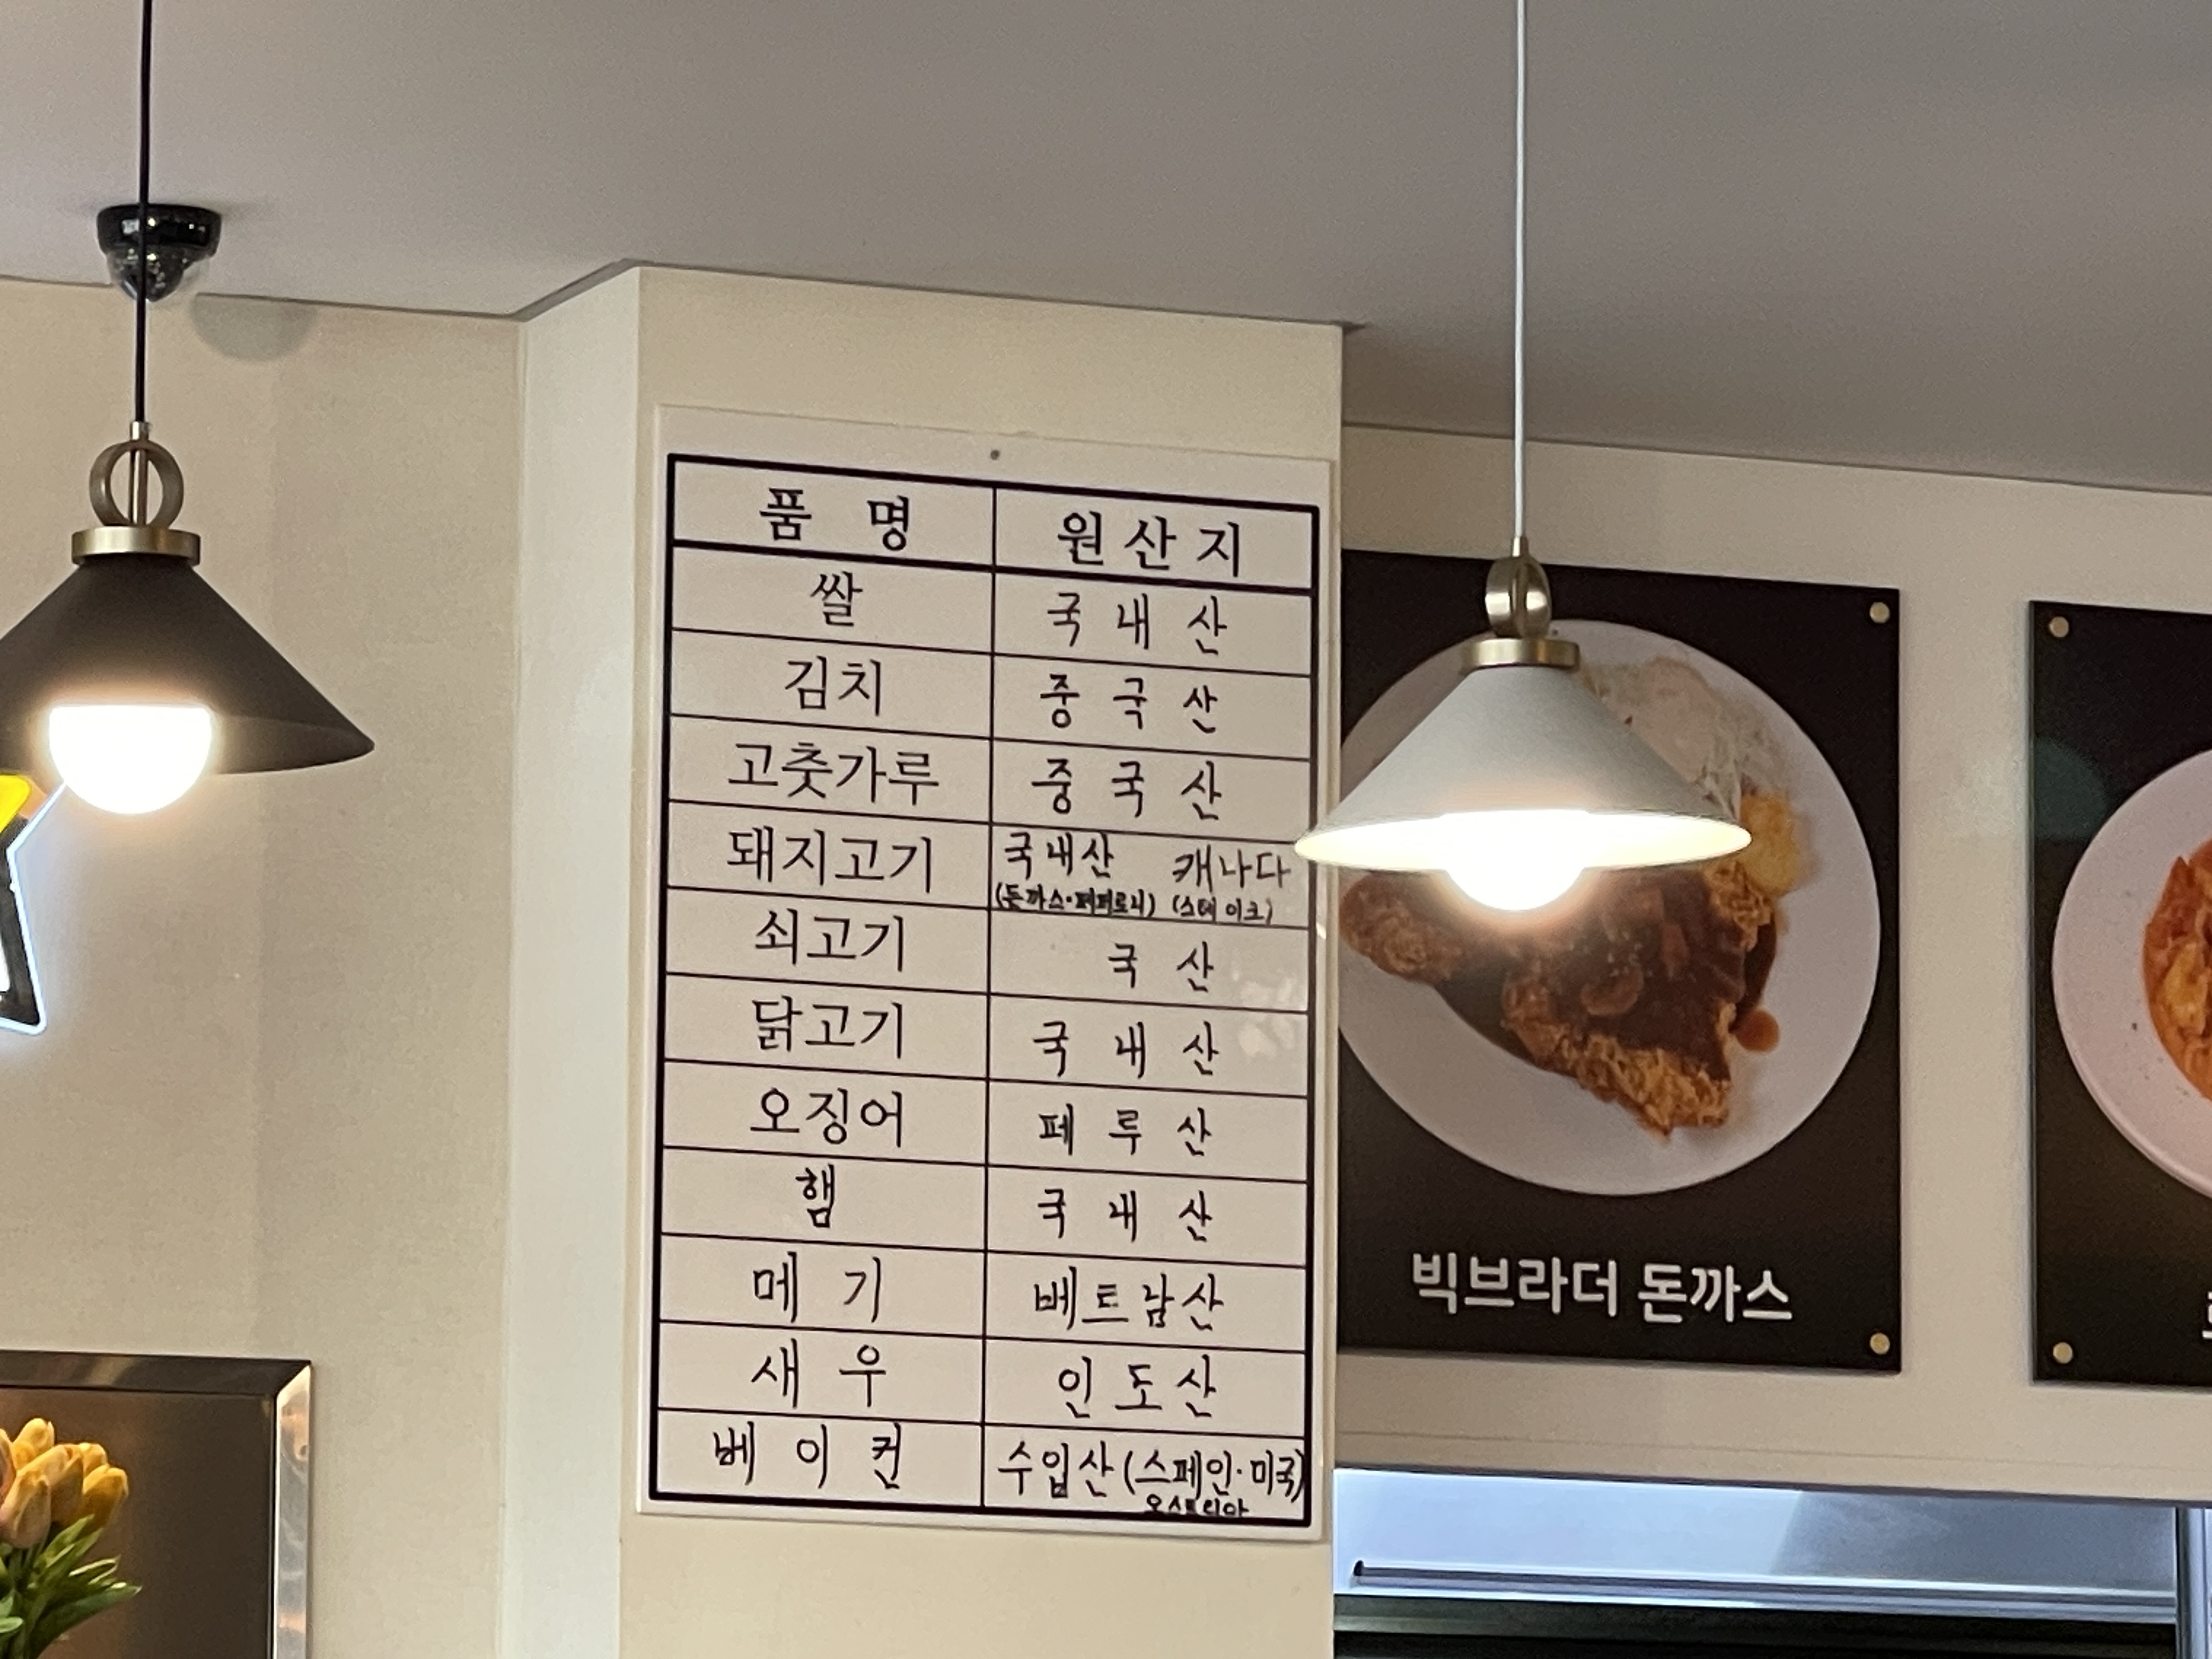 품 명 원산지
쌀 국 내 산
김치 중 국 산
고춧가루 중 국 산
돼지고기 국내산 캐나다
(돈까스·페퍼로니) (스테이크)
쇠고기 국 산
닭고기 국 내 산
오징어 페 루 산
햄 국 내 산
메 기 베트남산
새 우 인도산
베 이 컨 수입산(스페인·미국)
오스트리아
빅브라더 돈까스